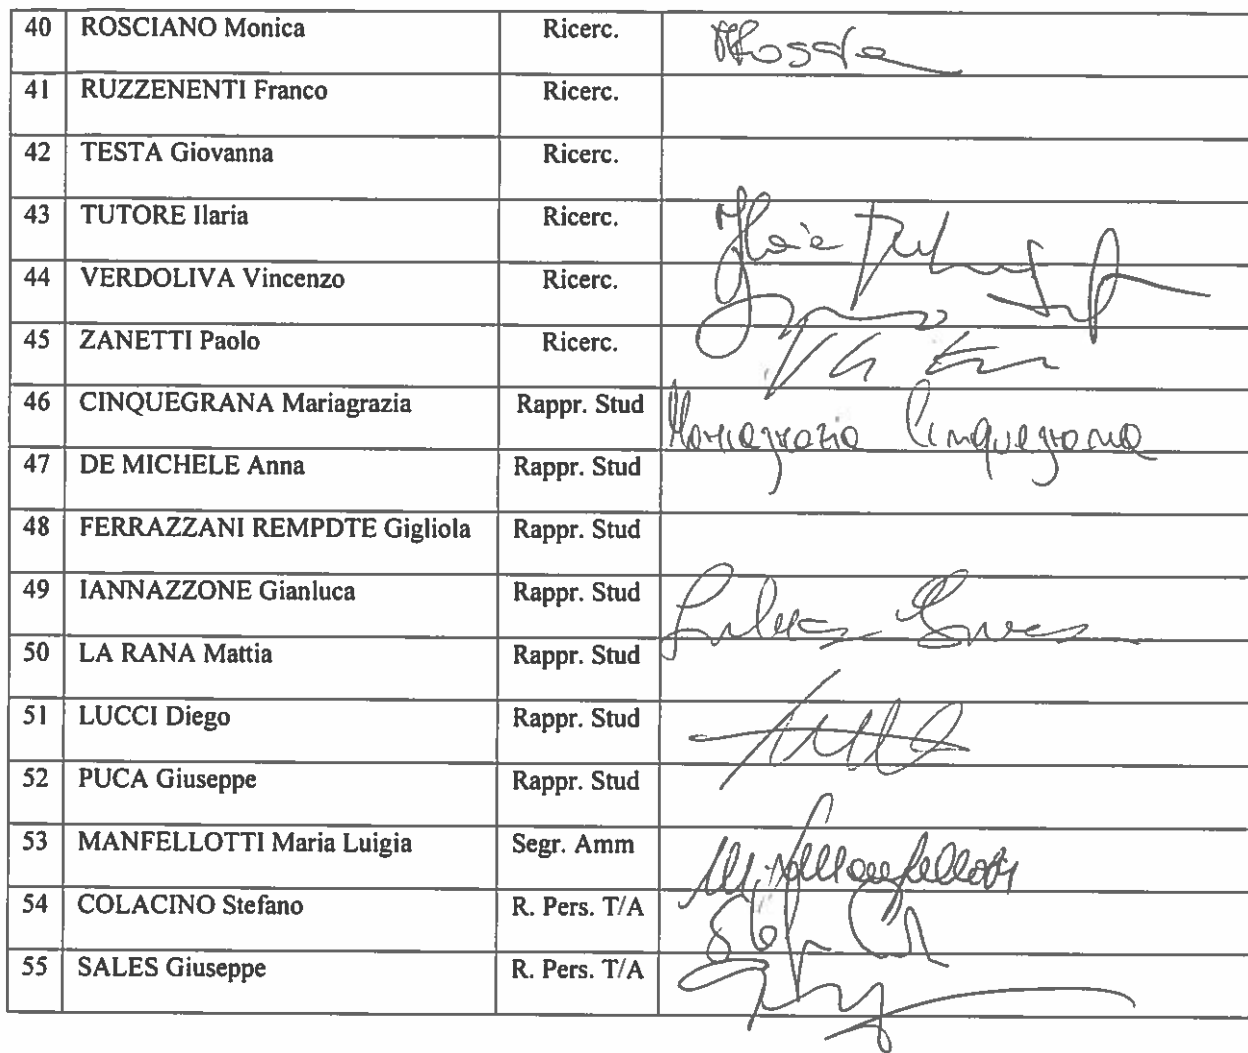 40 ROSCIANO Monica Ricerc.
41 RUZZENENTI Franco Ricerc.
42 TESTA Giovanna Ricerc.
43 TUTORE Ilaria Ricerc. Ilaria
44 VERDOLIVA Vincenzo Ricerc.
45 ZANETTI Paolo Ricerc.
46 CINQUEGRANA Mariagrazia Rappr. Stud Mariagrazia Cinquegrana
47 DE MICHELE Anna Rappr. Stud
48 FERRAZZANI REMPDTE Gigliola Rappr. Stud
49 IANNAZZONE Gianluca Rappr. Stud
50 LA RANA Mattia Rappr. Stud
51 LUCCI Diego Rappr. Stud
52 PUCA Giuseppe Rappr. Stud
53 MANFELLOTTI Maria Luigia Segr. Amm
54 COLACINO Stefano R. Pers. T/A
55 SALES Giuseppe R. Pers. T/A